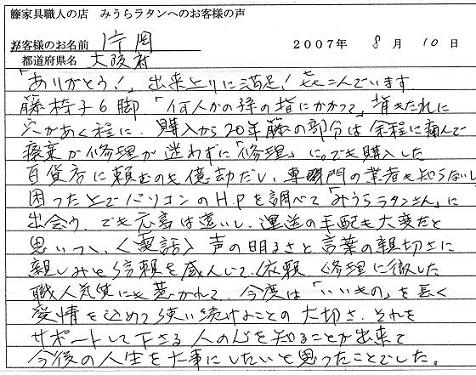 籐家具職人の店 みうらラタンへのお客様の声
お客様のお名前 片岡
2007年 8月10日
都道府県名 大阪府
「ありがとう!」出来上りに満足! 喜こんでいます
藤椅子6脚「何人かの孫の指にかかって」背もたれに
穴があく程に、購入から20年藤の部分は余程に痛んで
廃棄か修理か迷わずに「修理」に。でも購入した
百貨店に頼むのも億劫だし、専門の業者も知らないし
困った上でパソコンのHPを調べて「みうらラタンさん」に
出会う でも元高は遠いし、運送の手配も大変だと
思いつつ、〈電話〉声の明るさと言葉の親切さに
親しみと信頼を感んじて、依頼 修理に徹した
職人気質にも惹かれて、今度は「いいもの」を長く
愛情を込めて使い続けることの大切さ、それを
サポートして下さる人の心を知ることが出来て
今後の人生を大事にしたいと思ったことでした。